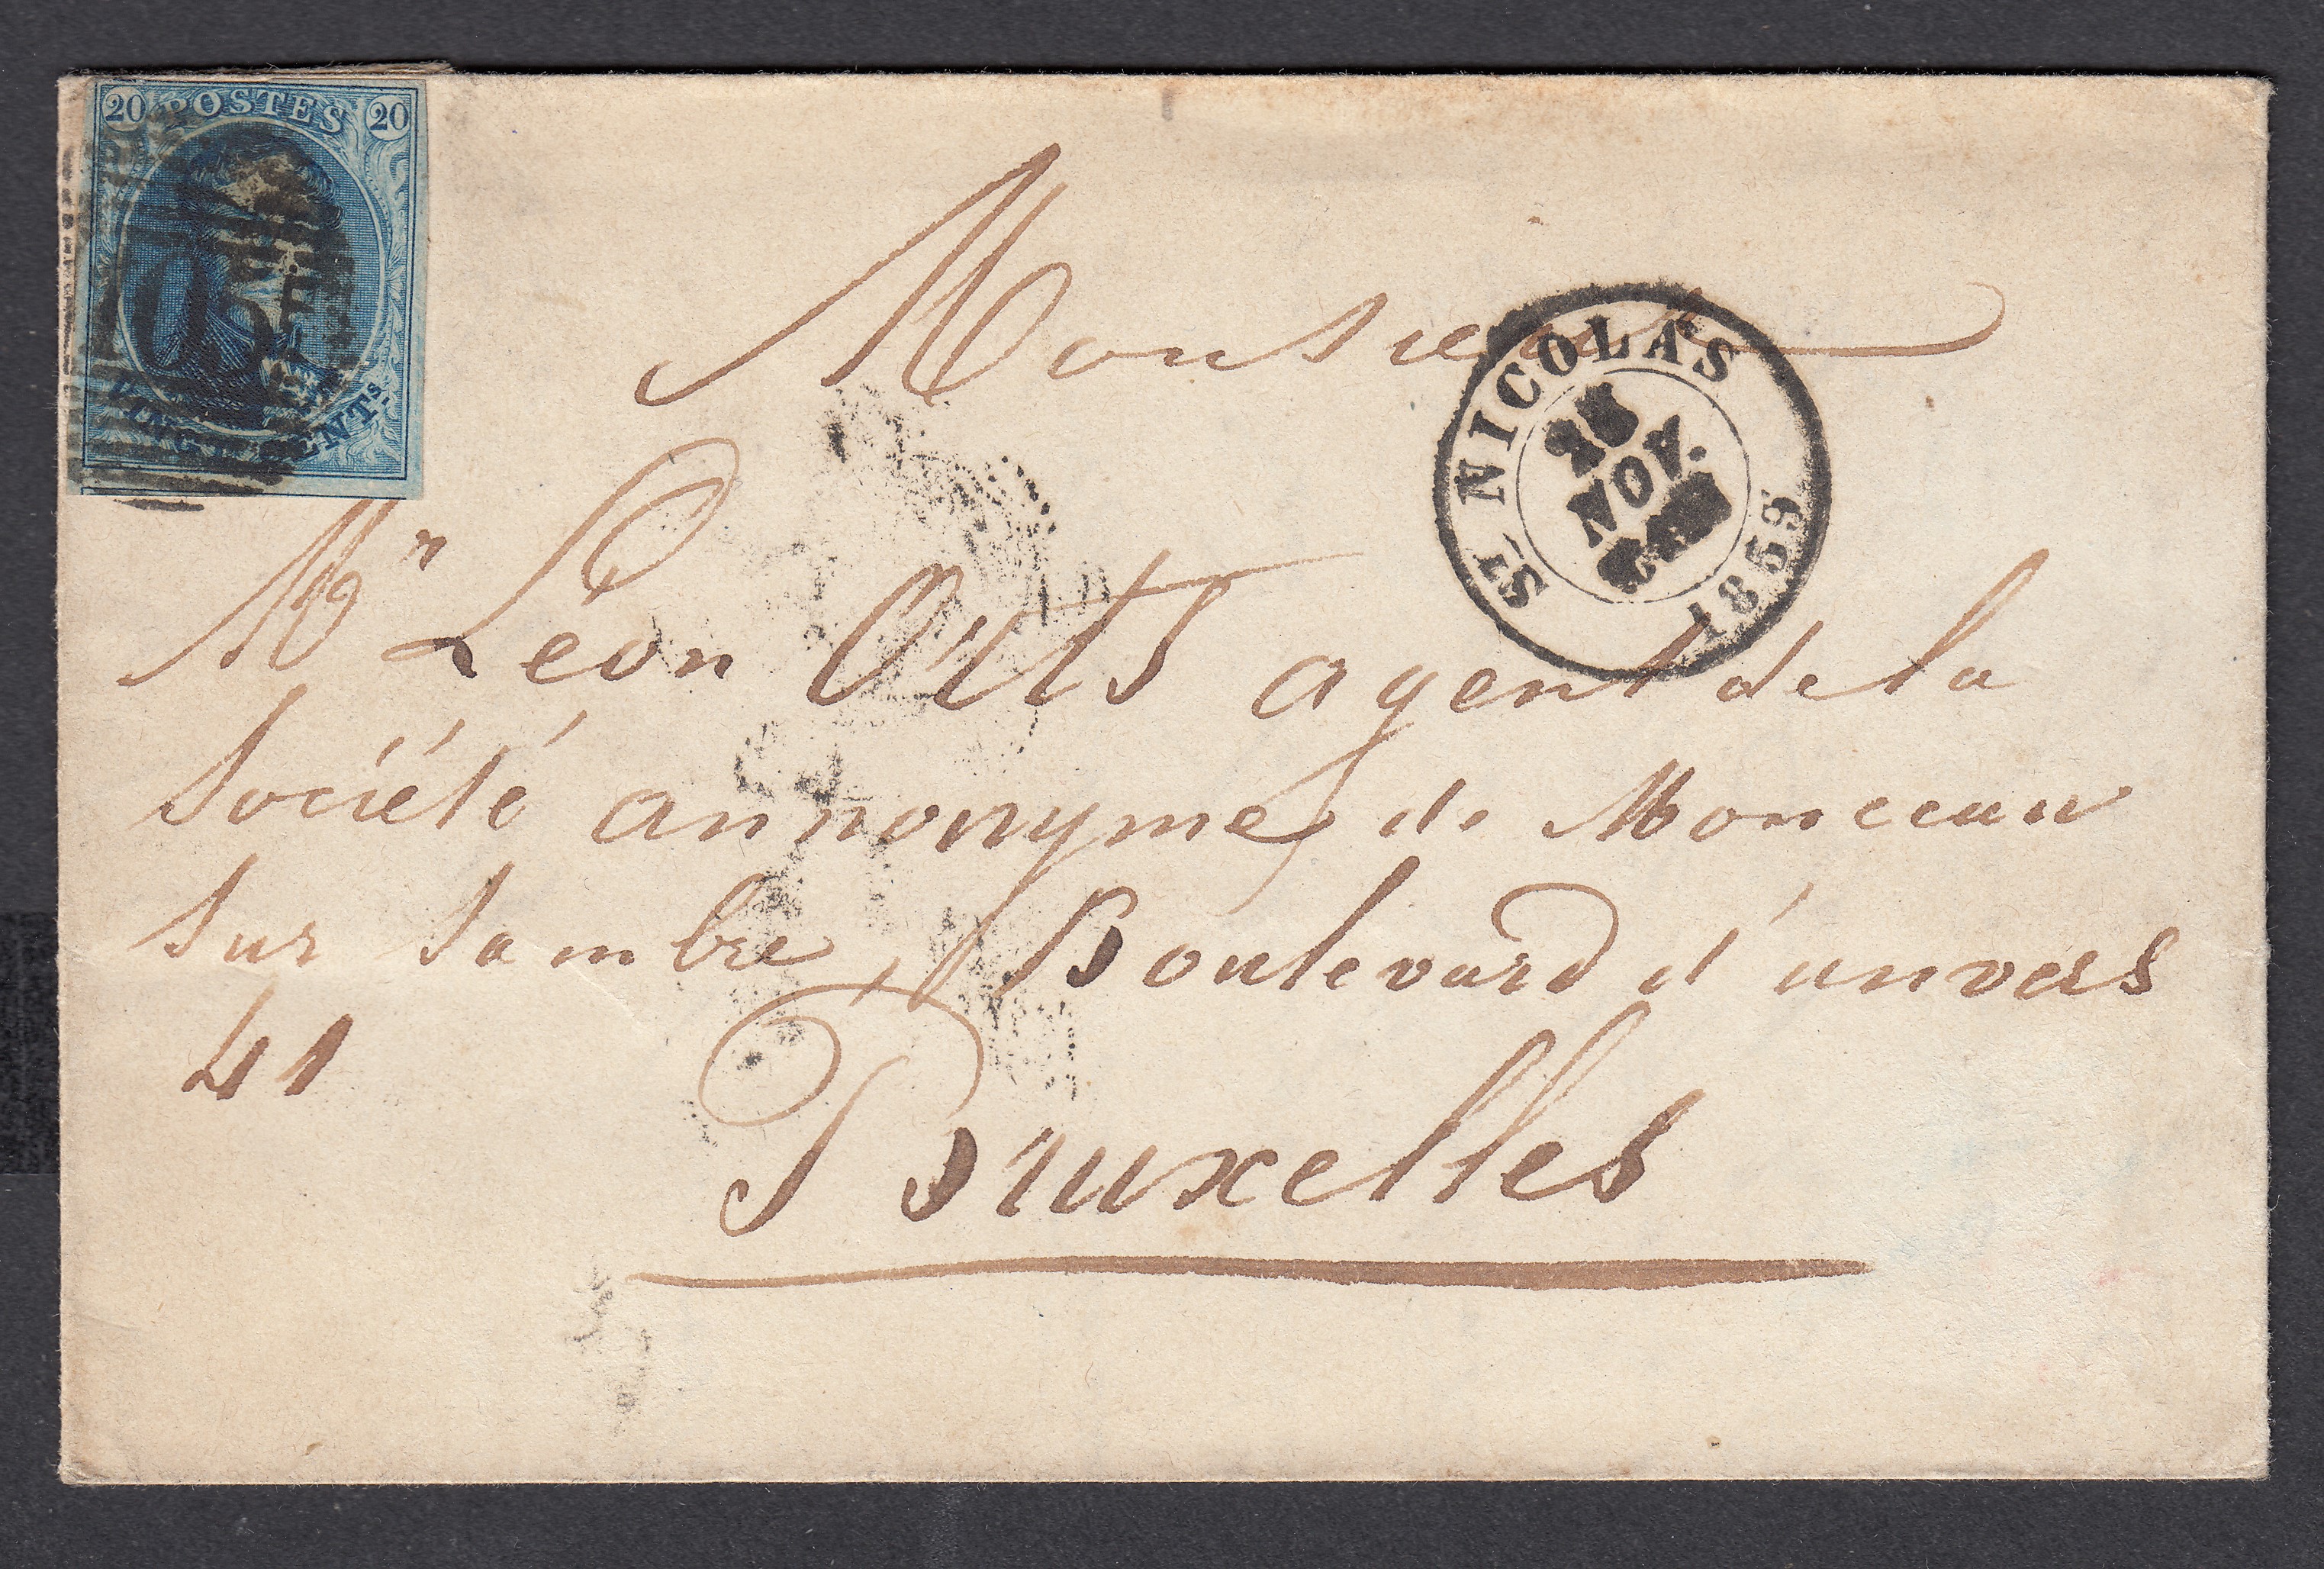 20 POSTES 20
VINGT CENTS.
Monsieur
ST NICOLAS
NOV.
1855
Mr Léon Orts agent de la
Société annonyme de Monceau
sur Sambre, Boulevard d'anvers
41
Bruxelles